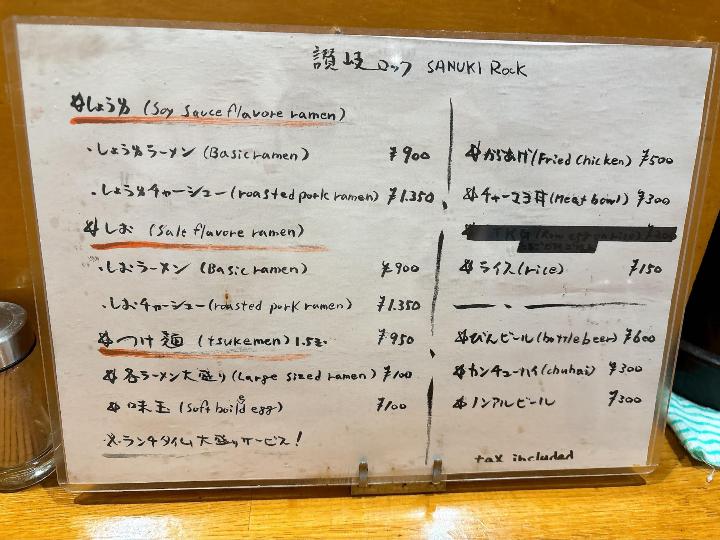 讃岐ロック SANUKI Rock
しょうゆ (Soy Sauce flavore ramen)
・しょうゆラーメン (Basic ramen) ¥900
・しょうゆチャーシュー (roasted pork ramen) ¥1.350
しお (Salt flavore ramen)
・しおラーメン (Basic ramen) ¥900
・しおチャーシュー (roasted pork ramen) ¥1.350
つけ麺 (tsukemen) 1.5玉 ¥950
各ラーメン大盛り (Large sized ramen) ¥100
味玉 (Soft boild egg) ¥100
※ランチタイム大盛りサービス!
からあげ (Fried Chicken) ¥500
チャーマヨ丼 (Meat bowl) ¥300
ライス (rice) ¥150
びんビール (bottle beer) ¥600
カンチューハイ (chuhai) ¥300
ノンアルビール ¥300
tax included